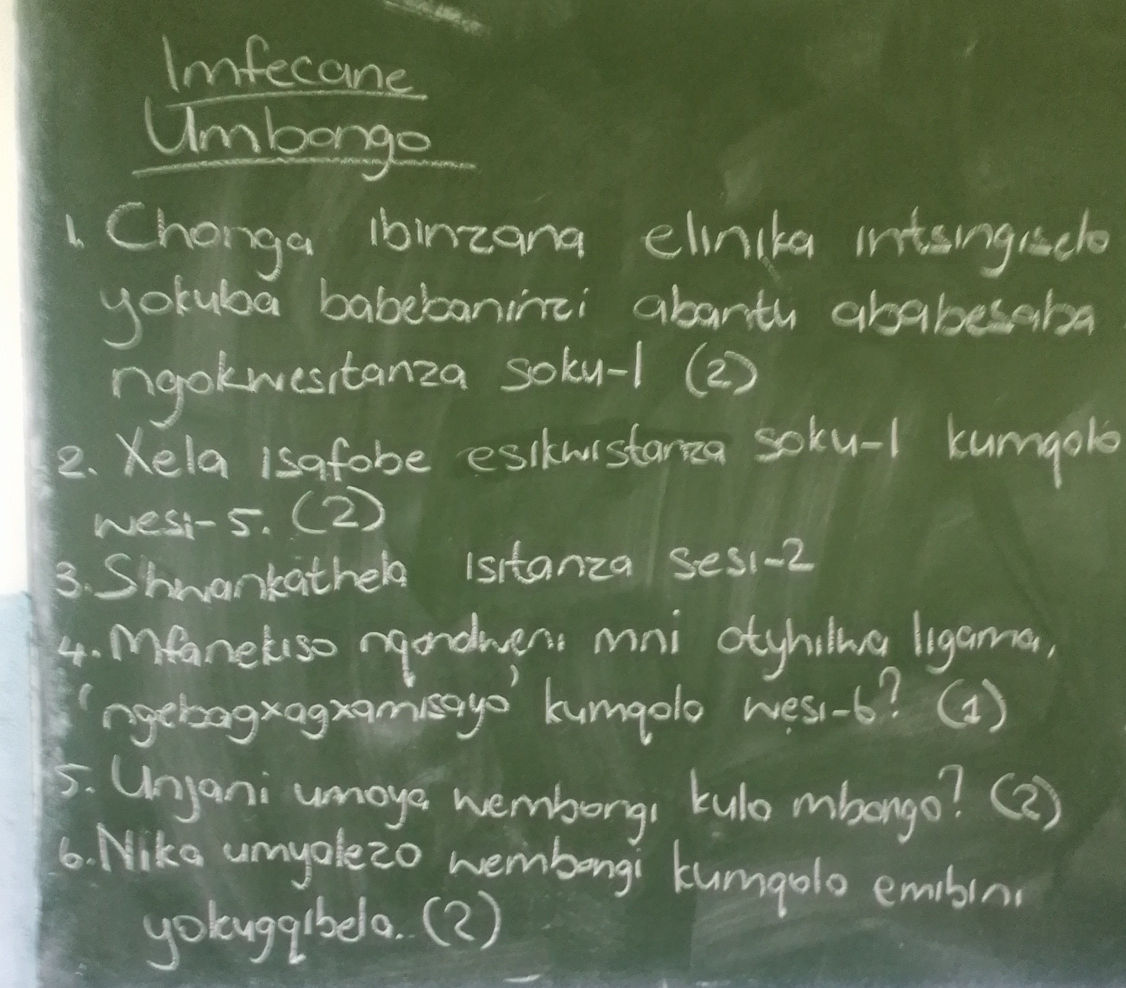 Imfecane
Umbongo
1. Chonga ibinzana elinika intsingiselo
yokuba babebaninzi abantu ababesaba
ngokwesitanza soku-1 (2)
2. Xela isafobe esikwistanza soku-1 kumqolo
wesi-5. (2)
3. Shwankathela isitanza sesi-2
4. Mfanekiso ngqondweni mni otyhilwa ligama,
'ngebagxagxamisayo' kumqolo wesi-6? (1)
5. Unjani umoya wembongi kulo mbongo? (2)
6. Nika umyalezo wembongi kumqolo emibini
yokugqibela. (2)